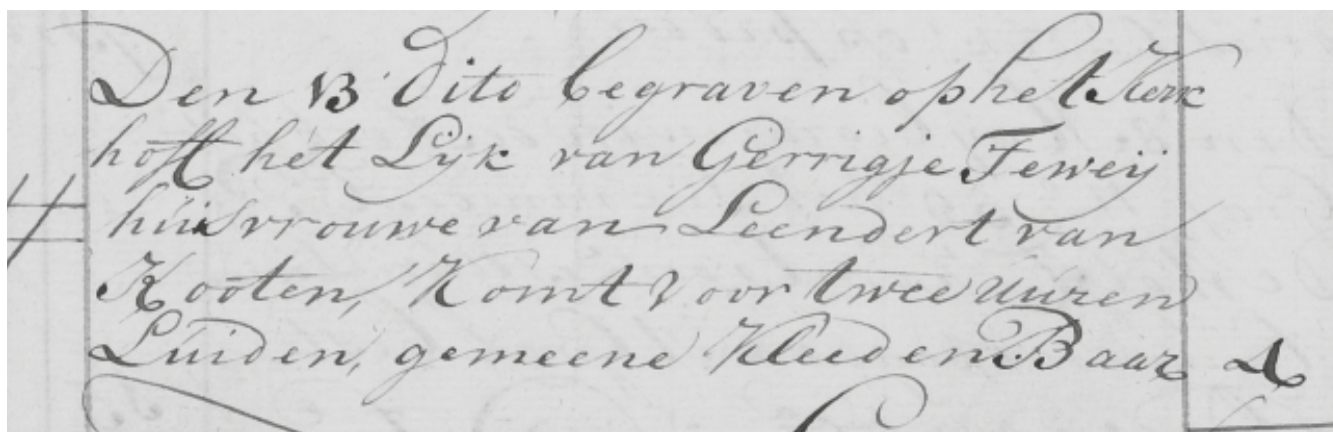 Den 13 dito begraven op het Kerk
hoff het Lijk van Gerrigje Feweij
huisvrouwe van Leendert van
Kooten, Komt voor twee Uuren
Luiden, gemeene Kleed en Baar 4